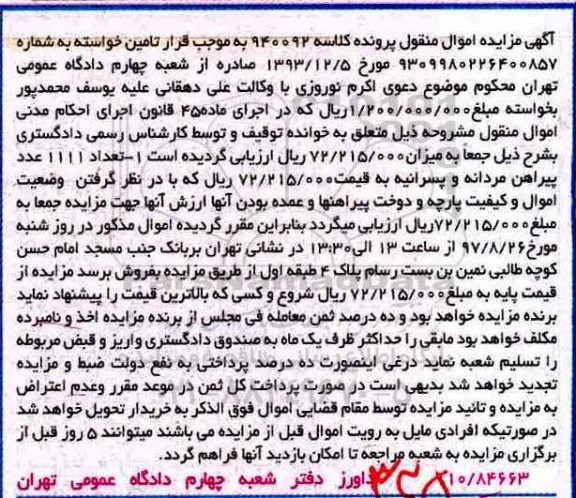 آگهی مزایده اموال منقول پرونده کلاسه ۹۴۰۰۹۲ به موجب قرار تامین خواسته به شماره
۹۳۰۹۹۸۰۲۲۶۴۰۰۸۵۷ مورخ ۱۳۹۳/۱۲/۵ صادره از شعبه چهارم دادگاه عمومی
تهران محکوم موضوع دعوی اکرم نوروزی با وکالت علی دهقانی علیه یوسف محمدپور
بخواسته مبلغ۱/۲۰۰/۰۰۰/۰۰۰ریال که در اجرای ماده۴۵ قانون اجرای احکام مدنی
اموال منقول مشروحه ذیل متعلق به خوانده توقیف و توسط کارشناس رسمی دادگستری
بشرح ذیل جمعا به میزان۷۲/۲۱۵/۰۰۰ ریال ارزیابی گردیده است ۱-تعداد ۱۱۱۱ عدد
پیراهن مردانه و پسرانیه به قیمت۷۲/۲۱۵/۰۰۰ ریال که با در نظر گرفتن وضعیت
اموال و کیفیت پارچه و دوخت پیراهنها و عمده بودن آنها ارزش آنها جهت مزایده جمعا به
مبلغ۷۲/۲۱۵/۰۰۰ریال ارزیابی میگردد بنابراین مقرر گردیده اموال مذکور در روز شنبه
مورخ۹۷/۸/۲۶ از ساعت ۱۳ الی۱۳:۳۰ در نشانی تهران بربانک جنب مسجد امام حسن
کوچه طالبی نمین بن بست رسام پلاک ۴ طبقه اول از طریق مزایده بفروش برسد مزایده از
قیمت پایه به مبلغ۷۲/۲۱۵/۰۰۰ ریال شروع و کسی که بالاترین قیمت را پیشنهاد نماید
برنده مزایده خواهد بود و ده درصد ثمن معامله فی مجلس از برنده مزایده اخذ و نامبرده
مکلف خواهد بود مابقی را حداکثر ظرف یک ماه به صندوق دادگستری واریز و قبض مربوطه
را تسلیم شعبه نماید درغی اینصورت ده درصد پرداختی به نفع دولت ضبط و مزایده
تجدید خواهد شد بدیهی است در صورت پرداخت کل ثمن در موعد مقرر وعدم اعتراض
به مزایده و تائید مزایده توسط مقام قضایی اموال فوق الذکر به خریدار تحویل خواهد شد
در صورتیکه افرادی مایل به رویت اموال قبل از مزایده می باشند میتوانند ۵ روز قبل از
برگزاری مزایده به شعبه مراجعه تا امکان بازدید آنها فراهم گردد.
۱۰/۸۴۶۶۳ داورز دفتر شعبه چهارم دادگاه عمومی تهران